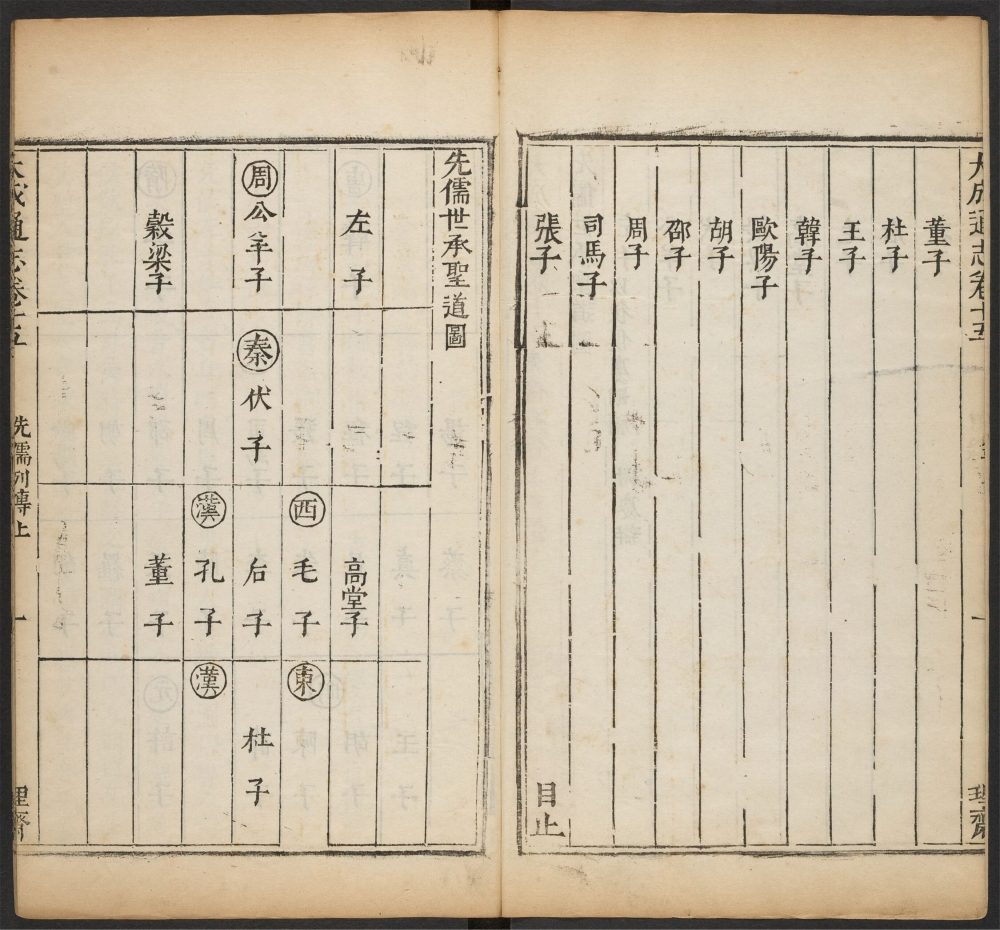 大成通志卷十五
一
理齋
董子
杜子
王子
韓子
歐陽子
胡子
邵子
周子
司馬子
張子
目止
先儒世承聖道圖
左子
周公羊子
穀梁子
秦伏子
西漢
高堂子
毛子
后子
孔子
董子
東漢
杜子
大成通志卷十五
先儒列傳上
一
理齋